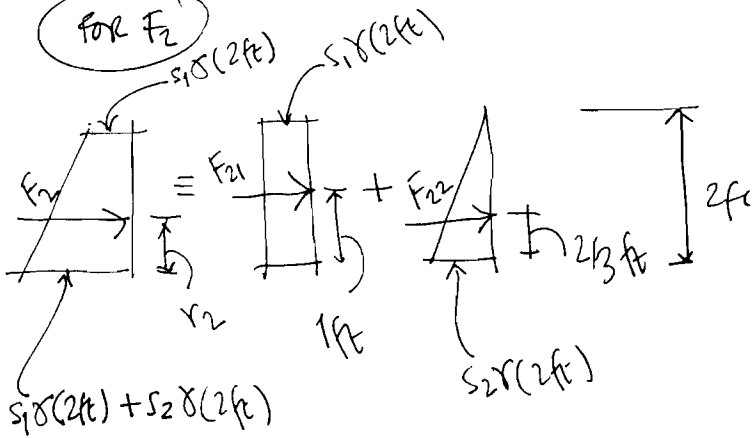 FOR F₂
S₁γ(2ft)
S₁γ(2ft)
F₂ ≡ F₂₁ + F₂₂
2ft
r₂
1ft
2/3 ft
S₁γ(2ft) + S₂γ(2ft)
S₂γ(2ft)